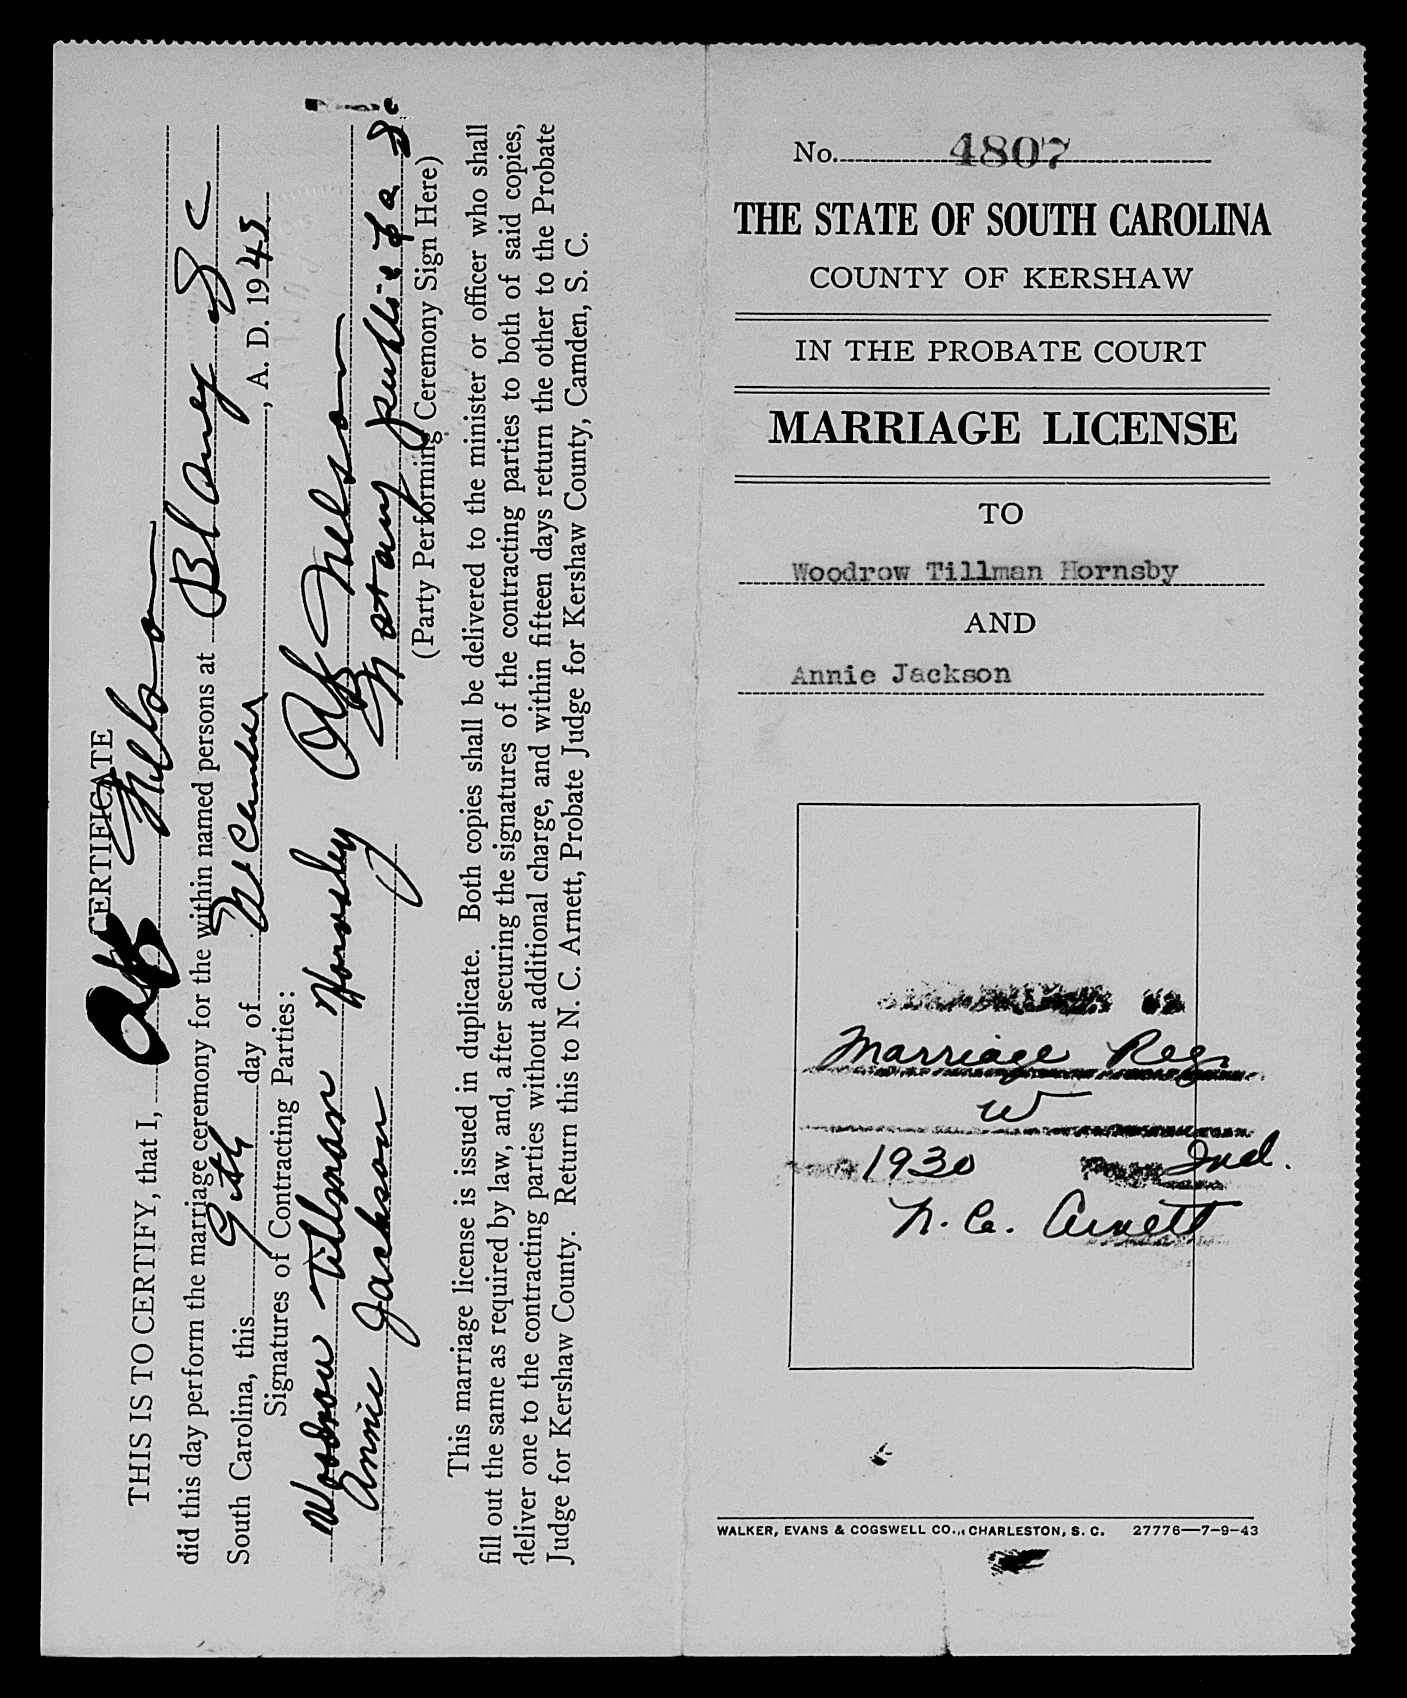 CERTIFICATE
THIS IS TO CERTIFY, that I, Nelson
did this day perform the marriage ceremony for the within named persons at Blaney S C
South Carolina, this 9th day of December, A. D. 1945
Signatures of Contracting Parties:
Woodrow Tillman Hornsby
Annie Jackson
Nelson
Notary public for S C
(Party Performing Ceremony Sign Here)
This marriage license is issued in duplicate. Both copies shall be delivered to the minister or officer who shall
fill out the same as required by law, and, after securing the signatures of the contracting parties to both of said copies,
deliver one to the contracting parties without additional charge, and within fifteen days return the other to the Probate
Judge for Kershaw County. Return this to N. C. Arnett, Probate Judge for Kershaw County, Camden, S. C.
No. 4807
THE STATE OF SOUTH CAROLINA
COUNTY OF KERSHAW
IN THE PROBATE COURT
MARRIAGE LICENSE
TO
Woodrow Tillman Hornsby
AND
Annie Jackson
Marriage Reg.
W
1930 Ind.
N. C. Arnett
WALKER, EVANS & COGSWELL CO., CHARLESTON, S. C. 27776—7-9-43